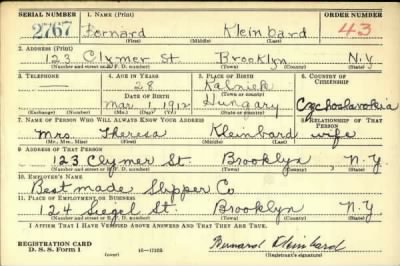 SERIAL NUMBER 1. NAME (Print) ORDER NUMBER
2767 Bernard Kleinbard 43
(First) (Middle) (Last)
2. ADDRESS (Print)
123 Clymer St. Brooklyn N.Y
(Number and street or R. F. D. number) (Town) (County) (State)
3. TELEPHONE 4. AGE IN YEARS 5. PLACE OF BIRTH 6. COUNTRY OF CITIZENSHIP
— 28 Kalnick Czechoslovakia
DATE OF BIRTH (Town or county)
Mar. 1, 1912 Hungary
(Exchange) (Number) (Mo.) (Day) (Yr.) (State or country)
7. NAME OF PERSON WHO WILL ALWAYS KNOW YOUR ADDRESS 8. RELATIONSHIP OF THAT PERSON
Mrs. Theresa Kleinbard wife
(Mr., Mrs., Miss) (First) (Middle) (Last)
9. ADDRESS OF THAT PERSON
123 Clymer St. Brooklyn, N.Y.
(Number and street or R. F. D. number) (Town) (County) (State)
10. EMPLOYER'S NAME
Best made Slipper Co
11. PLACE OF EMPLOYMENT OR BUSINESS
124 Siegel St. Brooklyn N.Y
(Number and street or R. F. D. number) (Town) (County) (State)
I AFFIRM THAT I HAVE VERIFIED ABOVE ANSWERS AND THAT THEY ARE TRUE.
REGISTRATION CARD
D. S. S. Form 1 (over) 16—17105 Bernard Kleinbard
(Registrant's signature)